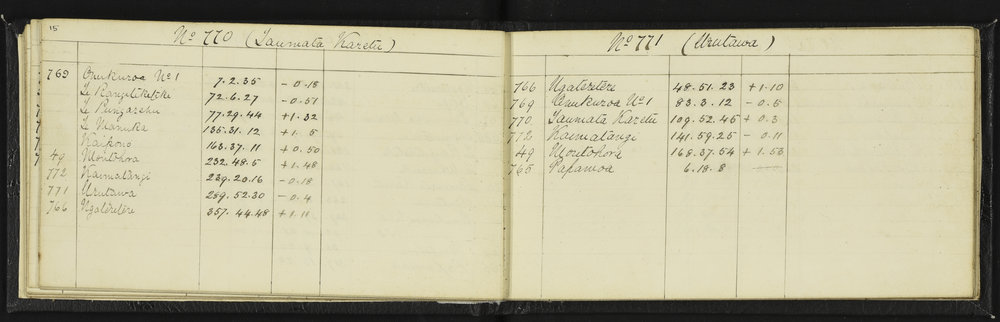 15
No 770 (Taumata Karetu)
769 Onukuroa No 1 7. 2. 35 - 0.18
Te Rangitiketike 72. 6. 27 - 0.51
Te Pungarehu 77. 29. 44 + 1. 32
Te Manuka 135. 31. 12 + 1. 5
Kaikono 163. 37. 11 + 0. 50
49 Moutohora 232. 48. 5 + 1.48
772 Kaimatangi 239. 20. 16 - 0.18
771 Urutawa 289. 52. 30 - 0. 4
766 Ngatiretere 357. 44. 48 + 1. 11
No 771 (Urutawa)
766 Ngatiretere 48. 51. 23 + 1. 10
769 Onukuroa No 1 83. 3. 12 - 0. 5
770 Taumata Karetu 109. 52. 45 + 0. 3
772 Kaimatangi 141. 59. 25 - 0. 11
49 Moutohora 168. 37. 54 + 1. 53
765 Papamoa 6. 18. 8